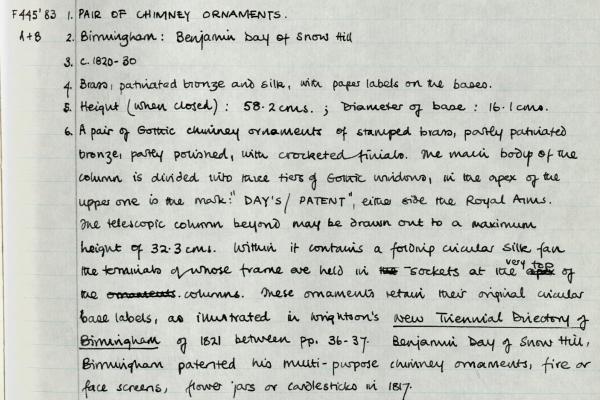 F445'83 1. PAIR OF CHIMNEY ORNAMENTS.
A+B 2. Birmingham: Benjamin Day of Snow Hill
3. c. 1820-30
4. Brass, patinated bronze and silk, with paper labels on the bases.
5. Height (when closed) : 58.2 cms. ; Diameter of base : 16.1 cms.
6. A pair of Gothic chimney ornaments of stamped brass, partly patinated
bronze, partly polished, with crocketed finials. The main body of the
column is divided into three tiers of Gothic windows, in the apex of the
upper one is the mark: "DAY'S / PATENT", either side the Royal Arms.
The telescopic column beyond may be drawn out to a maximum
height of 32.3 cms. Within it contains a folding circular silk fan
the terminals of whose frame are held in the sockets at the very top apex of
the ornaments. columns. These ornaments retain their original circular
base labels, as illustrated in Wrightson's New Triennial Directory of
Birmingham of 1821 between pp. 36-37. Benjamin Day of Snow Hill,
Birmingham patented his multi-purpose chimney ornaments, fire or
face screens, flower jars or candlesticks in 1817.